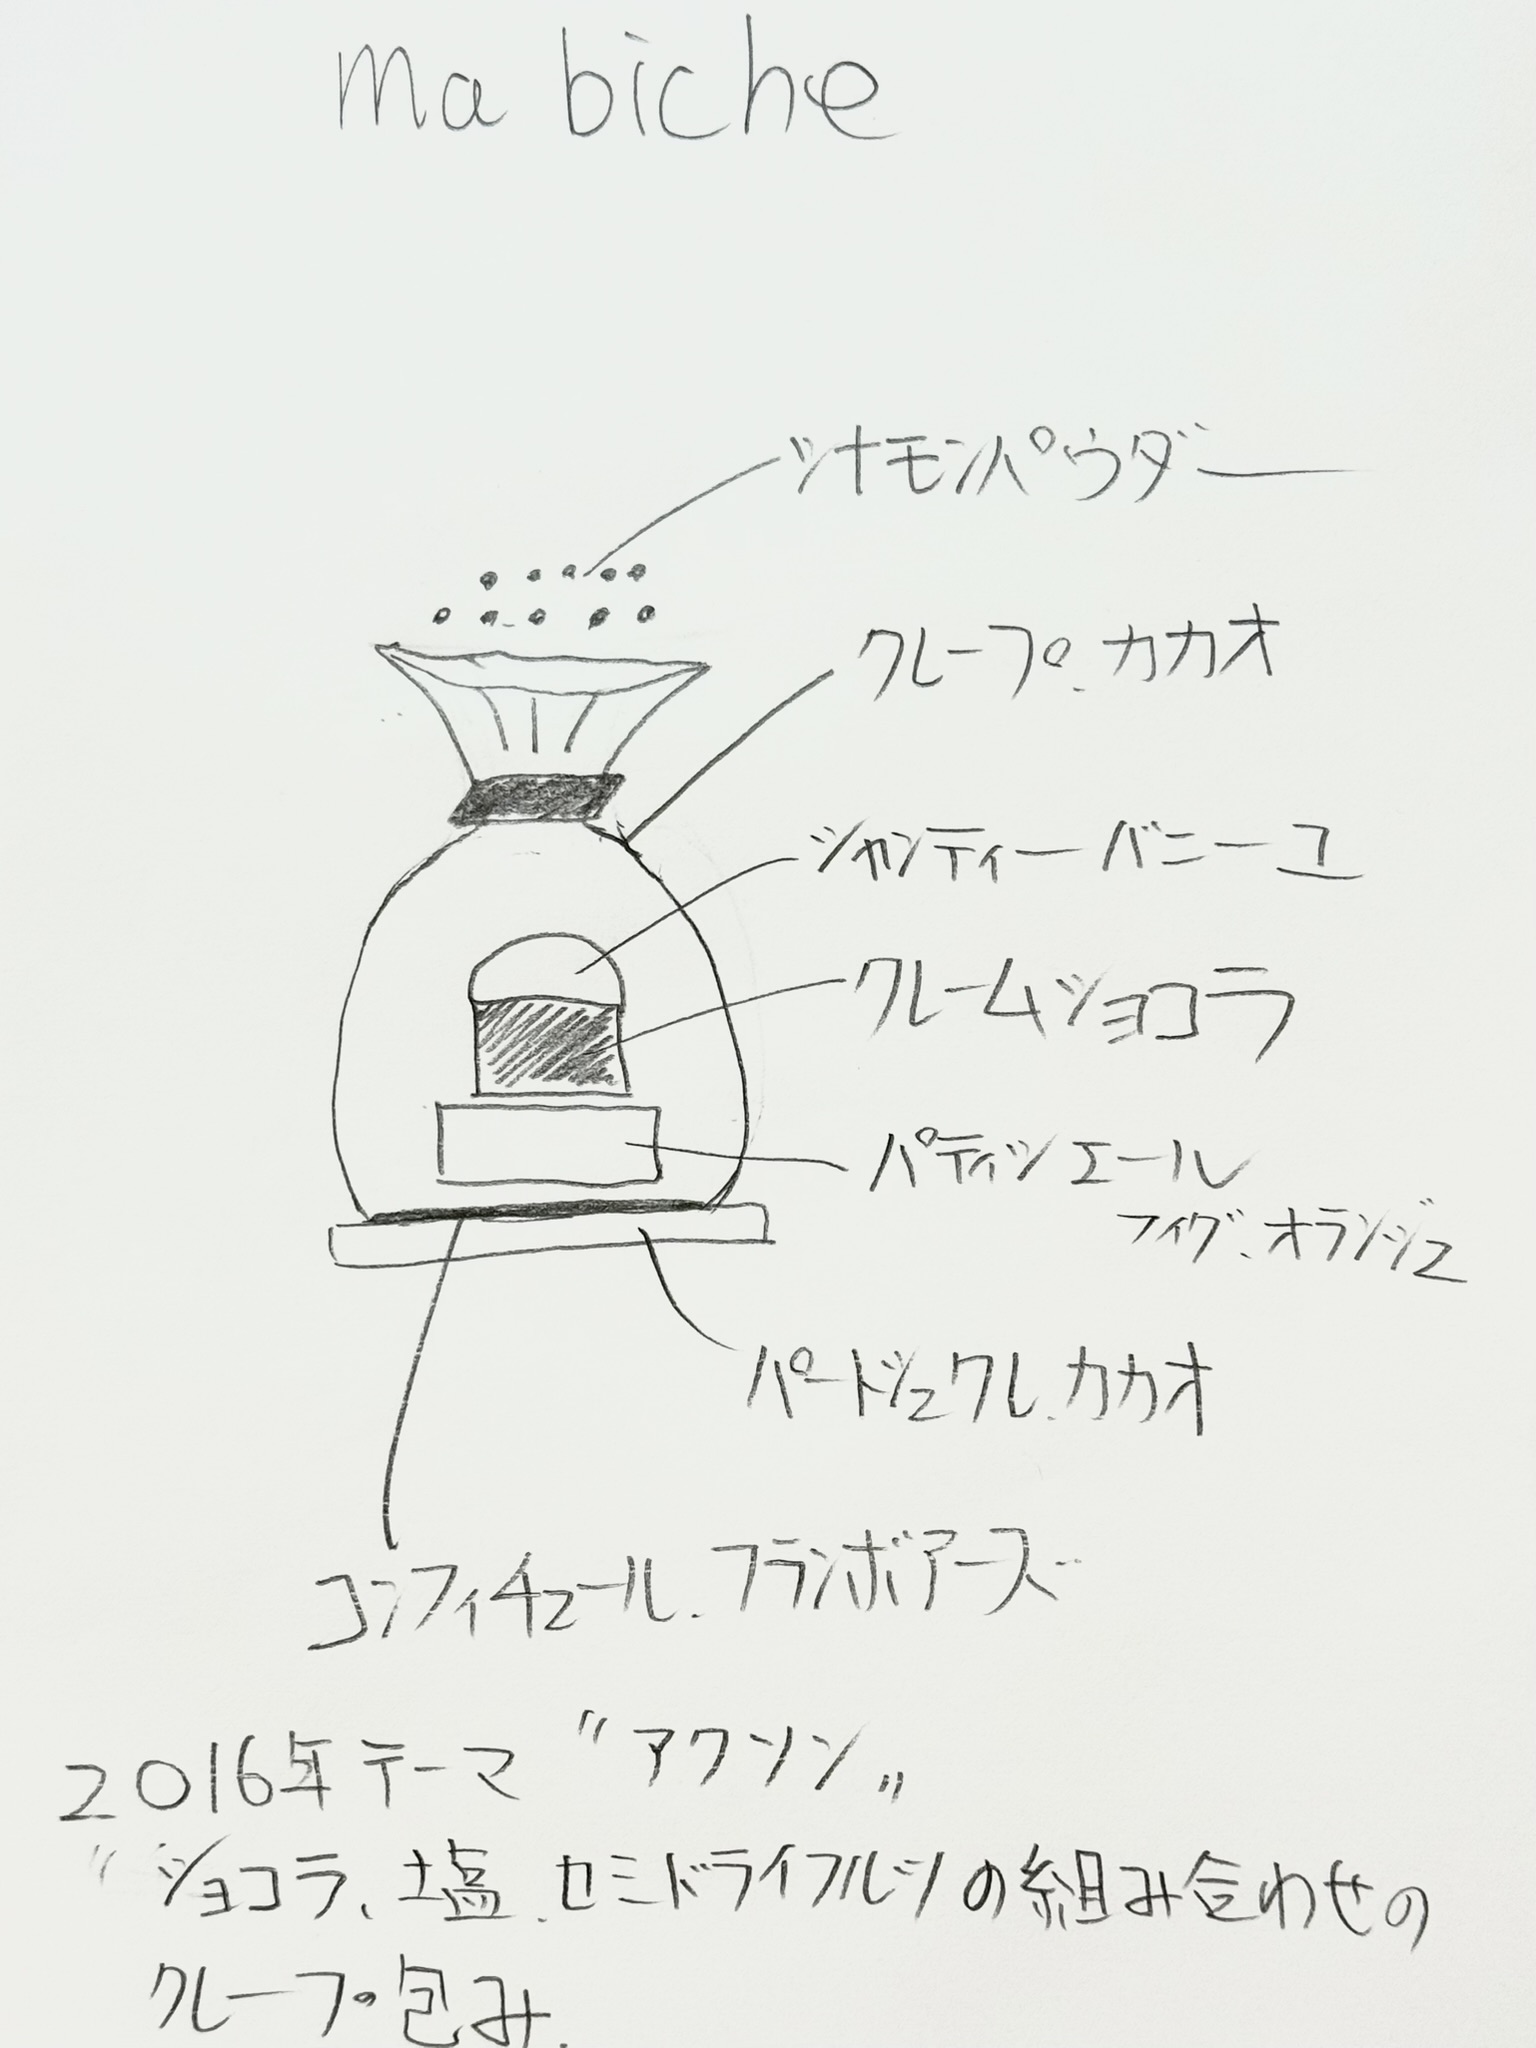 ma biche
シナモンパウダー
クレープ.カカオ
シャンティーバニーユ
クレームショコラ
パティシエール
フィグ.オランジュ
パートシュクレ.カカオ
コンフィチュール.フランボアーズ
2016年テーマ〝アクソン〟
〝ショコラ、塩.セミドライフルーツの組み合わせの
クレープ包み.